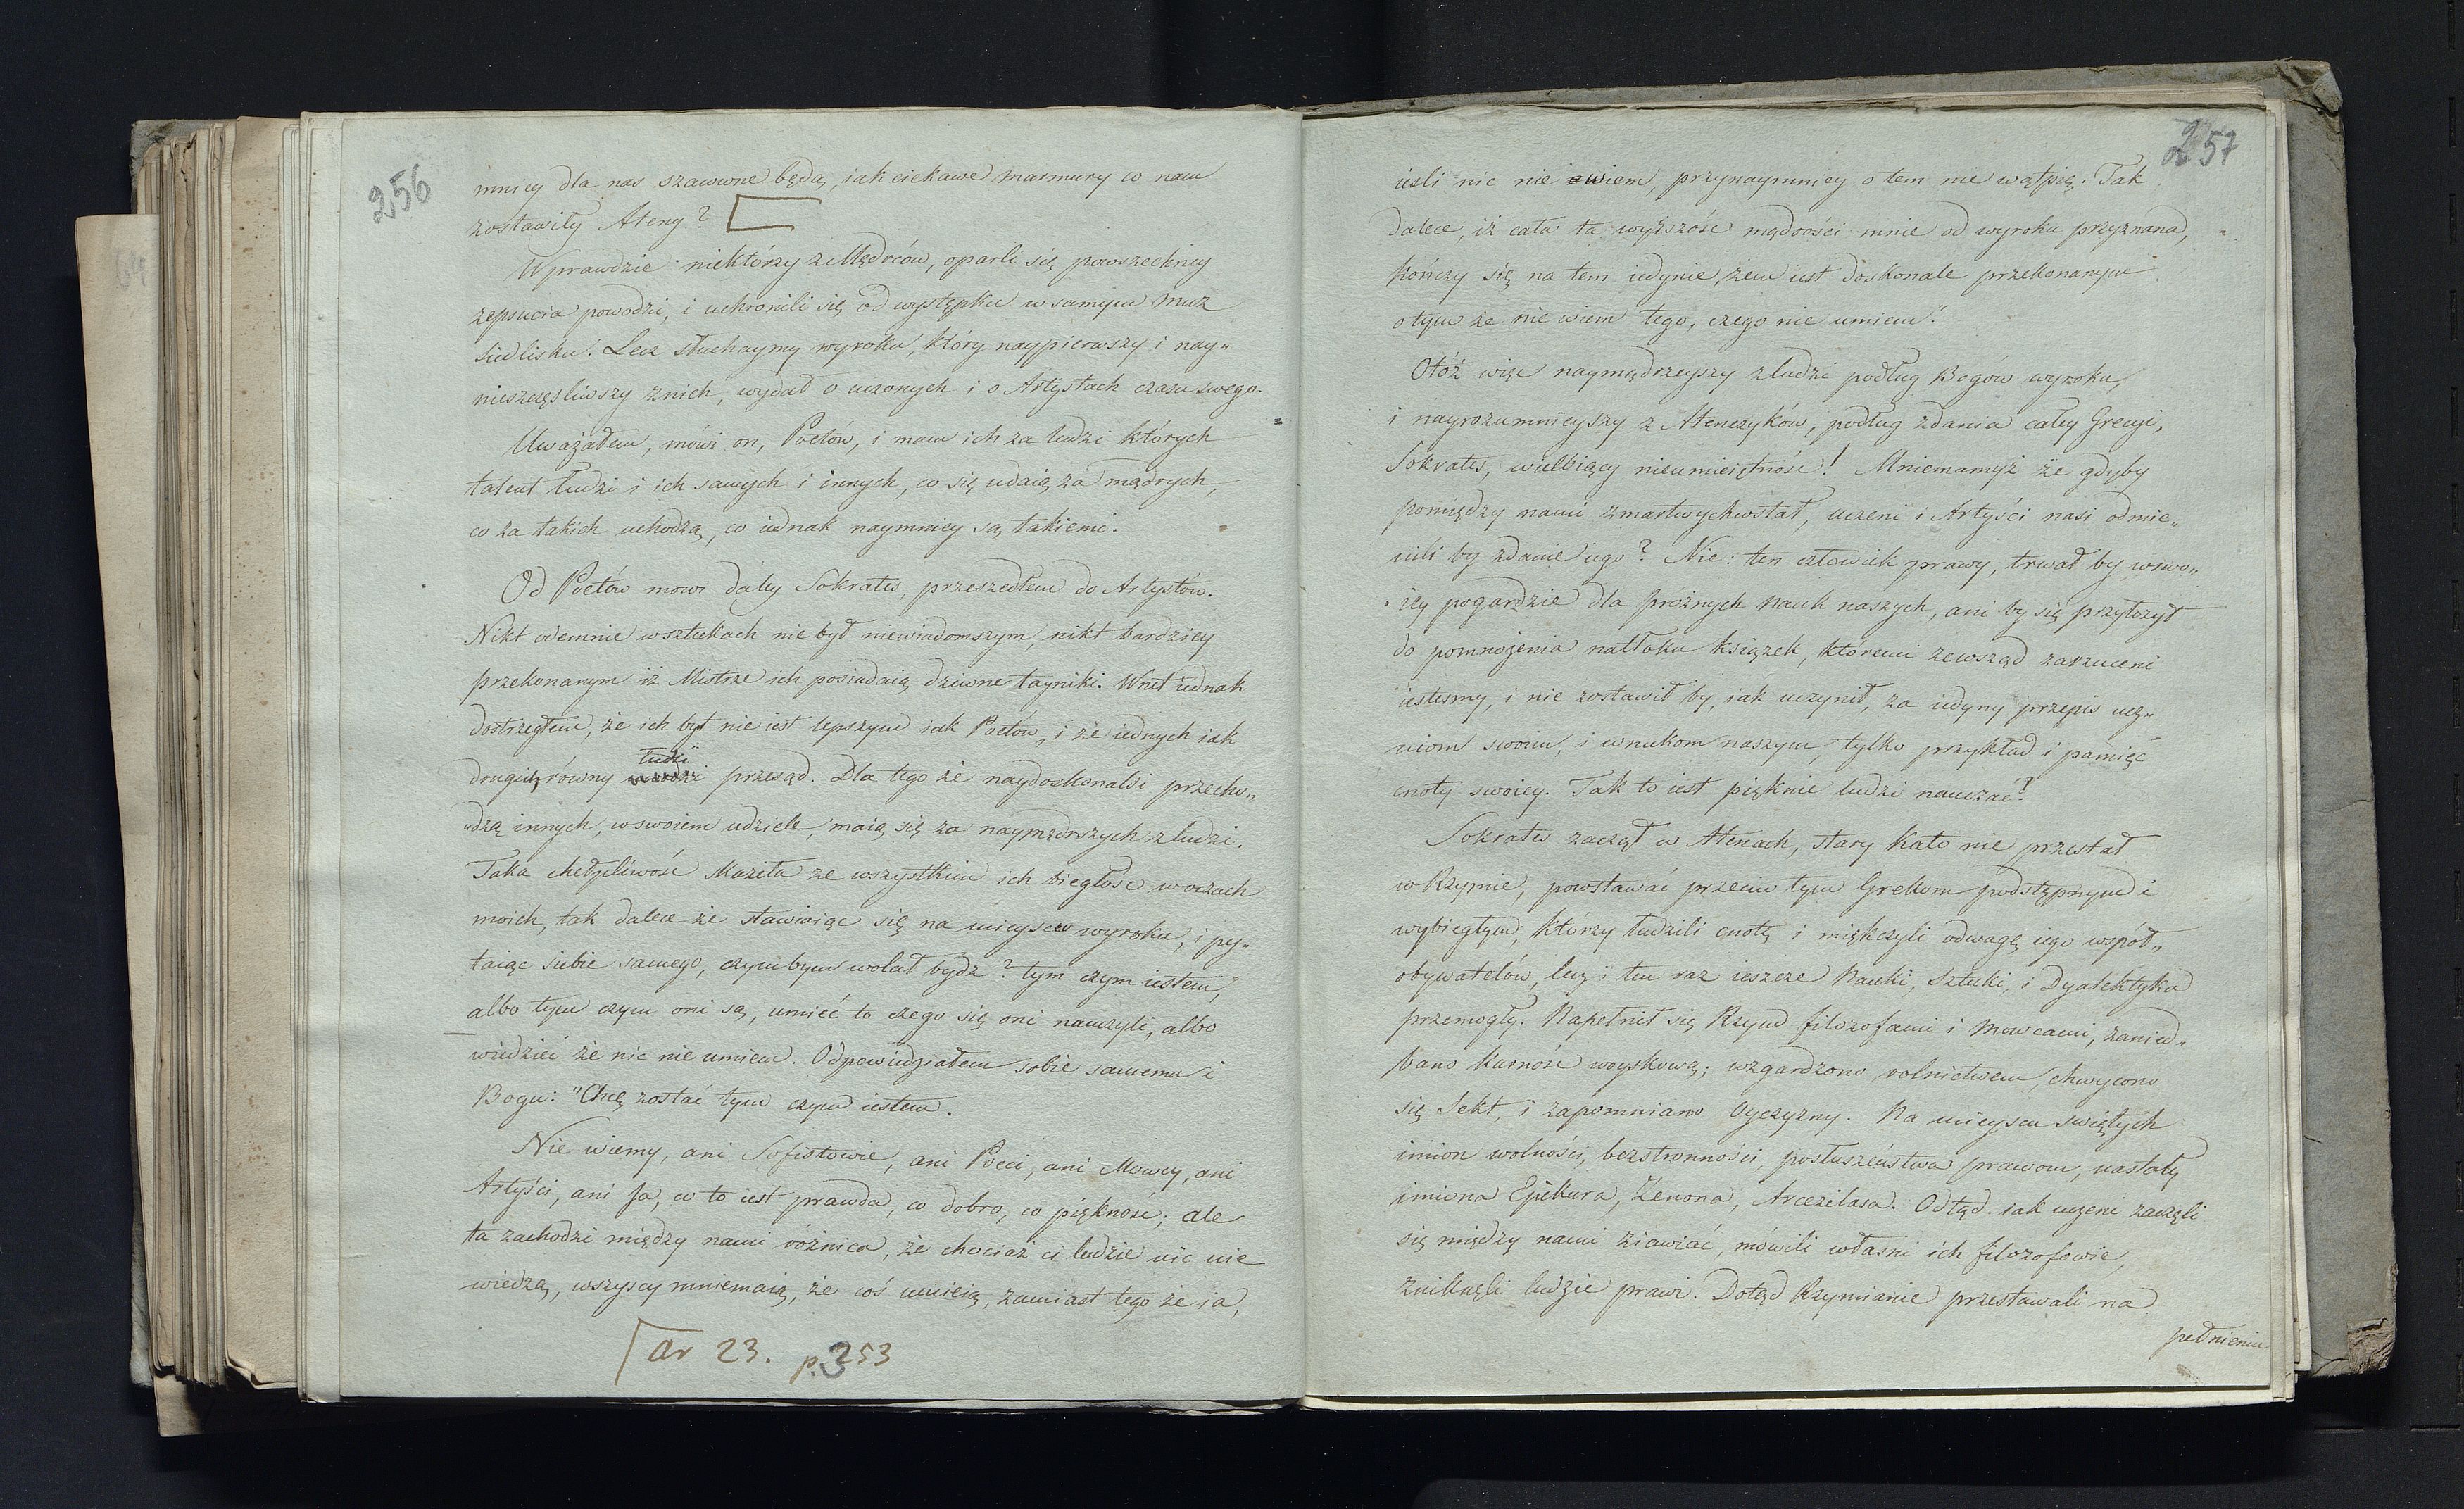 256
mniey dla nas szacowne będą, iak ciekawe marmury co nam
zostawiły Ateny?
Wprawdzie niektórzy z Mędrców, oparli się powszechney
zepsucia powodzi, i uchronili się od występku w samym Muz
siedlisku. Lecz słuchaymy wyroku, który naypierwszy i nay„
nieszczęśliwszy z nich, wydał o uczonych i o Artystach czasu swego.
Uważałem, mówi on, Poetów, i mam ich za ludzi których
talent łudzi i ich samych i innych, co się udaią za mądrych,
co za takich uchodzą, co iednak naymniey są takiemi.
Od Poetów mowi daley Sokrates, przeszedłem do Artystów.
Nikt odemnie w sztukach nie był niewiadomszym, nikt bardziey
przekonanym iż Mistrze ich posiadaią dziwne tayniki. Wnet iednak
dostrzegłem, że ich byt nie iest lepszym iak Poetów, i że iednych iak
drugich równy łudzi przesąd. Dla tego że naydoskonalsi przecho„
„dzą innych, w swoiem udziele, maią się za naymędrszych z ludzi.
Taka chełpliwość kaziła ze wszystkim ich biegłość w oczach
moich, tak dalece że stawiaiąc się na mieyscu wyroku, i py„
taiąc siebie samego, czymbym wolał bydz? tym czym iestem,
albo tym czym oni są, umieć to czego się oni nauczyli, albo
wiedzieć że nic nie umiem. Odpowiedziałem sobie samemu i
Bogu: "Chcę zostać tym czym iestem.
Nie wiemy, ani Sofistowie, ani Poeci, ani Mowcy, ani
Artyści, ani Ja, co to iest prawda, co dobro, co piękność; ale
ta zachodzi między nami różnica, że chociaż ci ludzie nic nie
wiedzą, wszyscy mniemaią, że coś umieią, zamiast tego że ia,
ar 23. p. 253
257
ieśli nic nie wiem, przynaymniey o tem nie wątpię. Tak
dalece, iż cała ta wyższość mądrości mnie od wyroku przyznana,
kończy się na tem iedynie, żem iest doskonale przekonanym
o tym że nie wiem tego, czego nie umiem."
Otóż więc naymądrzeyszy z ludzi podług Bogów wyroku,
i nayrozumnieyszy z Atenczyków, podług zdania całey Grecyi,
Sokrates, wielbiący nieumieiętność! Mniemamyż że gdyby
pomiędzy nami zmartwychwstał, uczeni i Artyści nasi odmie„
nili by zdanie iego? Nie: ten człowiek prawy, trwał by w swo„
iey pogardzie dla prożnych nauk naszych, ani by się przyłożył
do pomnożenia natłoku książek, któremi zewsząd zarzuceni
iestesmy, i nie zostawił by, iak uczynił, za iedyny przepis ucz„
niom swoim, i wnukom naszym, tylko przykład i pamięć
cnoty swoiey. Tak to iest pięknie ludzi nauczać!
Sokrates zaczął w Atenach, stary Kato nie przestał
w Rzymie, powstawać przeciw tym Grekom podstępnym i
wybiegłym, którzy łudzili cnotę i miękczyli odwagę iego współ„
obywatelów, lecz i ten raz ieszcze Nauki, Sztuki, i Dyalektyka
przemogły. Napełnił się Rzym filozofami i mowcami, zanied„
bano karność woyskową; wzgardzono rolnictwem, chwycono
się Sekt, i zapomniano Oyczyzny. Na mieyscu świętych
imion wolności, bezstronności, posłuszeństwa prawom, nastały
imiona Epikura, Zenona, Arcezilasa. Odtąd iak uczeni zaczęli
się między nami ziawiać, mówili właśni ich filozofowie,
zniknęli ludzie prawi. Dotąd Rzymianie przestawali na
pełnieniu